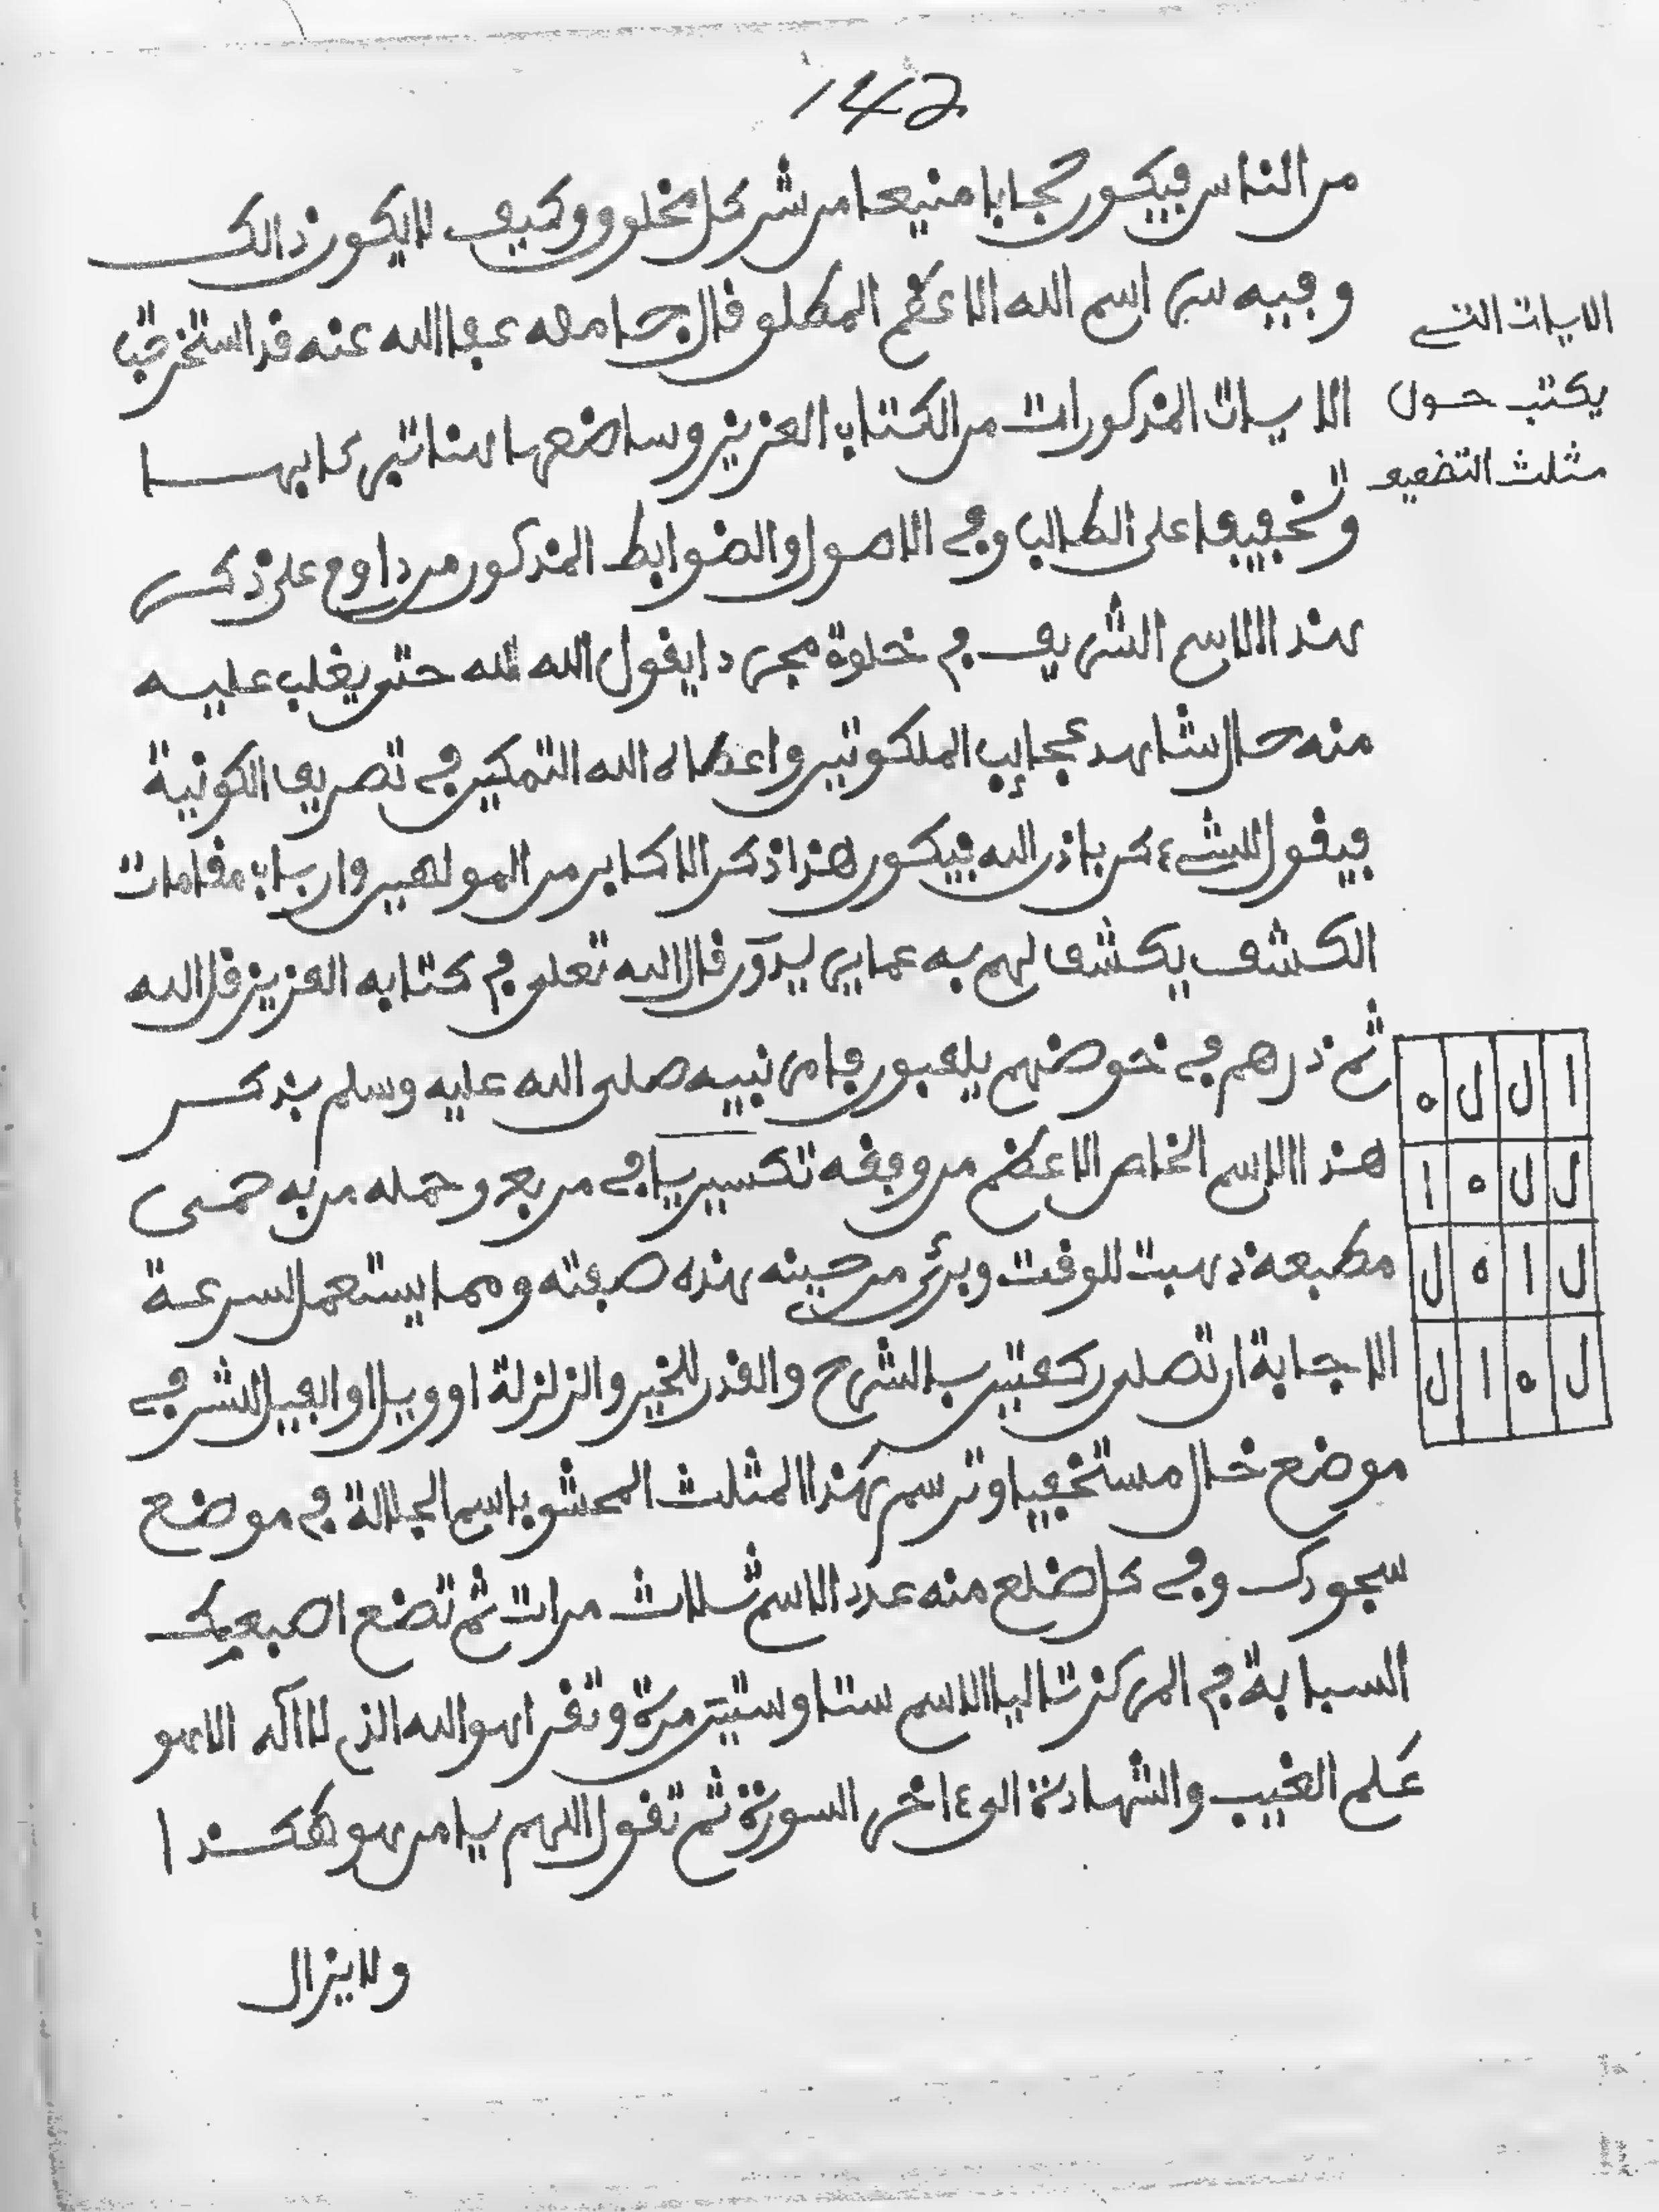 142
من الناس فيكون حجابا منيعا من شر كل مخلوق وكيف لا يكون ذالك
وفيه سر اسم الله الاعظم المطلق قال جامعه عفا الله عنه قد استخرجت
الايات المذكورات من الكتاب العزيز وساضعها هنا تبركا بها
وتخفيفا على الطالب وفي الاصول والضوابط المذكور من داوم على ذكر
هذا الاسم الشريف في خلوة مجردا يقول الله الله حتى يغلب عليه
منه حال شاهد عجايب الملكوتين واعطاه الله التمكين في تصريف الكونية
فيقول للشيء كن باذن الله فيكون هذا ذكر الاكابر من المولهين وارباب مقامات
الكشف يكشف لهم به عما يريدون قال الله تعلى في كتابه العزيز قل الله
ثم ذرهم في خوضهم يلعبون فامر نبيه صلى الله عليه وسلم بذكر
هذا الاسم الخاص الاعظم من وفقه تكسيريا في مربع وحمله من به حمى
مطبعة ذهبت للوقت وبرئ من حينه بهذه صفته ومما يستعمل لسرعة
الاجابة ان تصلى ركعتين بالشرح والقدر للخير والزلزلة او ويل او الفيل للشر في
موضع خال مستخفيا وترسم بهذا المثلث المحشو باسم الجلالة في موضع
سجودك وفي كل ضلع منه عدد الاسم ثلاث مرات ثم تضع اصبعك
السبابة في المركز تاليا الاسم ستا وستين مرة وتقرا هو الله الذي لا اله الا هو
علم الغيب والشهادة الى ءاخر السورة ثم تقول اللهم يا من هو هكذا
ولا يزال
الايات التي
يكتب حول
مثلث التضعيف
ا ل ل ه
ل ل ه ا
ل ا ه ل
ل ه ا ل